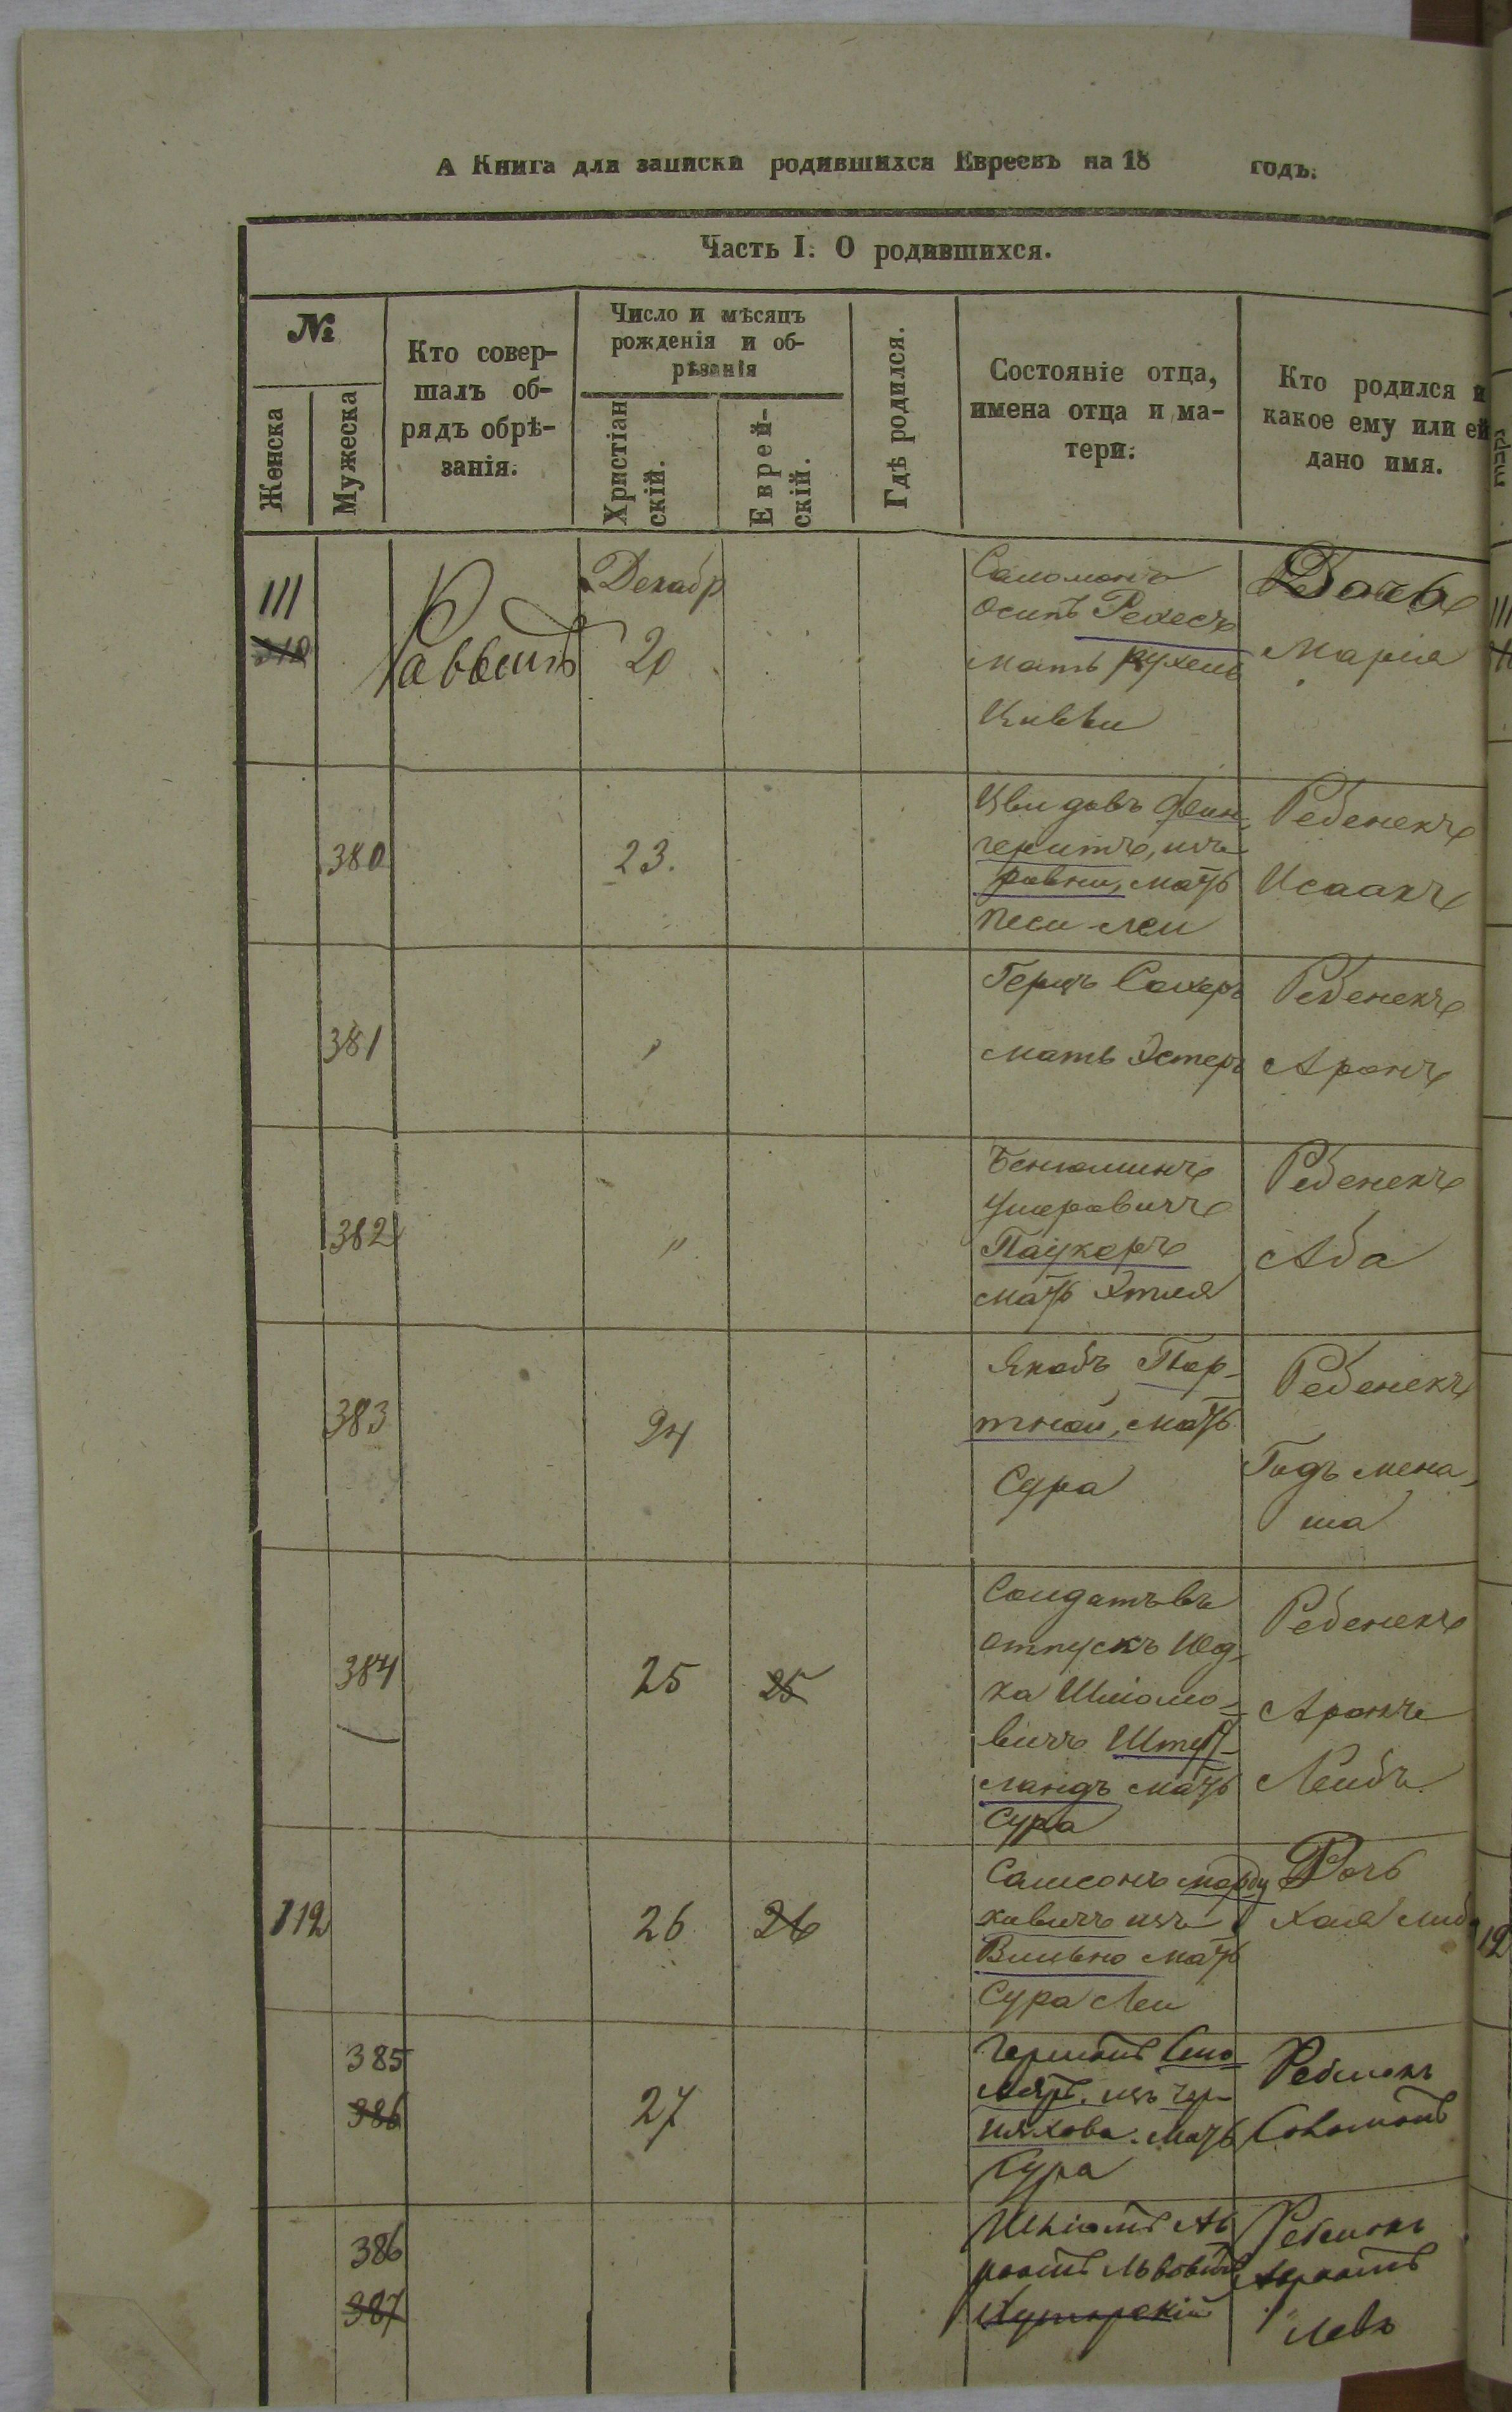 А Книга для записки родившихся Евреевъ на 18 годъ.
Часть I. О родившихся.
№
Женска
Мужеска
Кто совер-
шалъ об-
рядъ обрѣ-
занія.
Число и мѣсяцъ
рожденія и об-
рѣзанія
Христіан
скій.
Еврей-
скій.
Гдѣ родился.
Состояніе отца,
имена отца и ма-
тери.
Кто родился и
какое ему или ей
дано имя.
111
Раввинъ
Декабр
20
Саломонъ
Осипъ Рехесъ
мать Рухель
Цивьи
Дочь
Марія
380
23.
Цви довъ Фин-
изъ
ровны, мать
песи леи
Ребенекъ
Исаакъ
381
"
Герцъ Сахеръ
мать Эстеръ
Ребенекъ
Аронъ
382
"
Бенюминъ
Умеровичъ
Паукеръ
мать Этля
Ребенекъ
Аба
383
24
Якобъ Пор-
тной, мать
Сура
Ребенекъ
Годъ мена-
ша
384
25
25
Солдатъ въ
отпускъ Юд-
ка Шліомо-
вичъ Штер-
ландъ мать
Сура
Ребенекъ
Аронъ
Леибъ
112
26
26
Самсонъ морду
ховичъ изъ
Вильно мать
Сура Леи
Дочь
Хая либа
385
386
27
Германъ Сто
ляръ. изъ Чер-
няхова. мать
Сура
Ребенокъ
Соломонъ
386
387
Шліомъ Аа
ронъ Львовичъ
Хуторскій
Ребенокъ
Ааронъ
Левъ